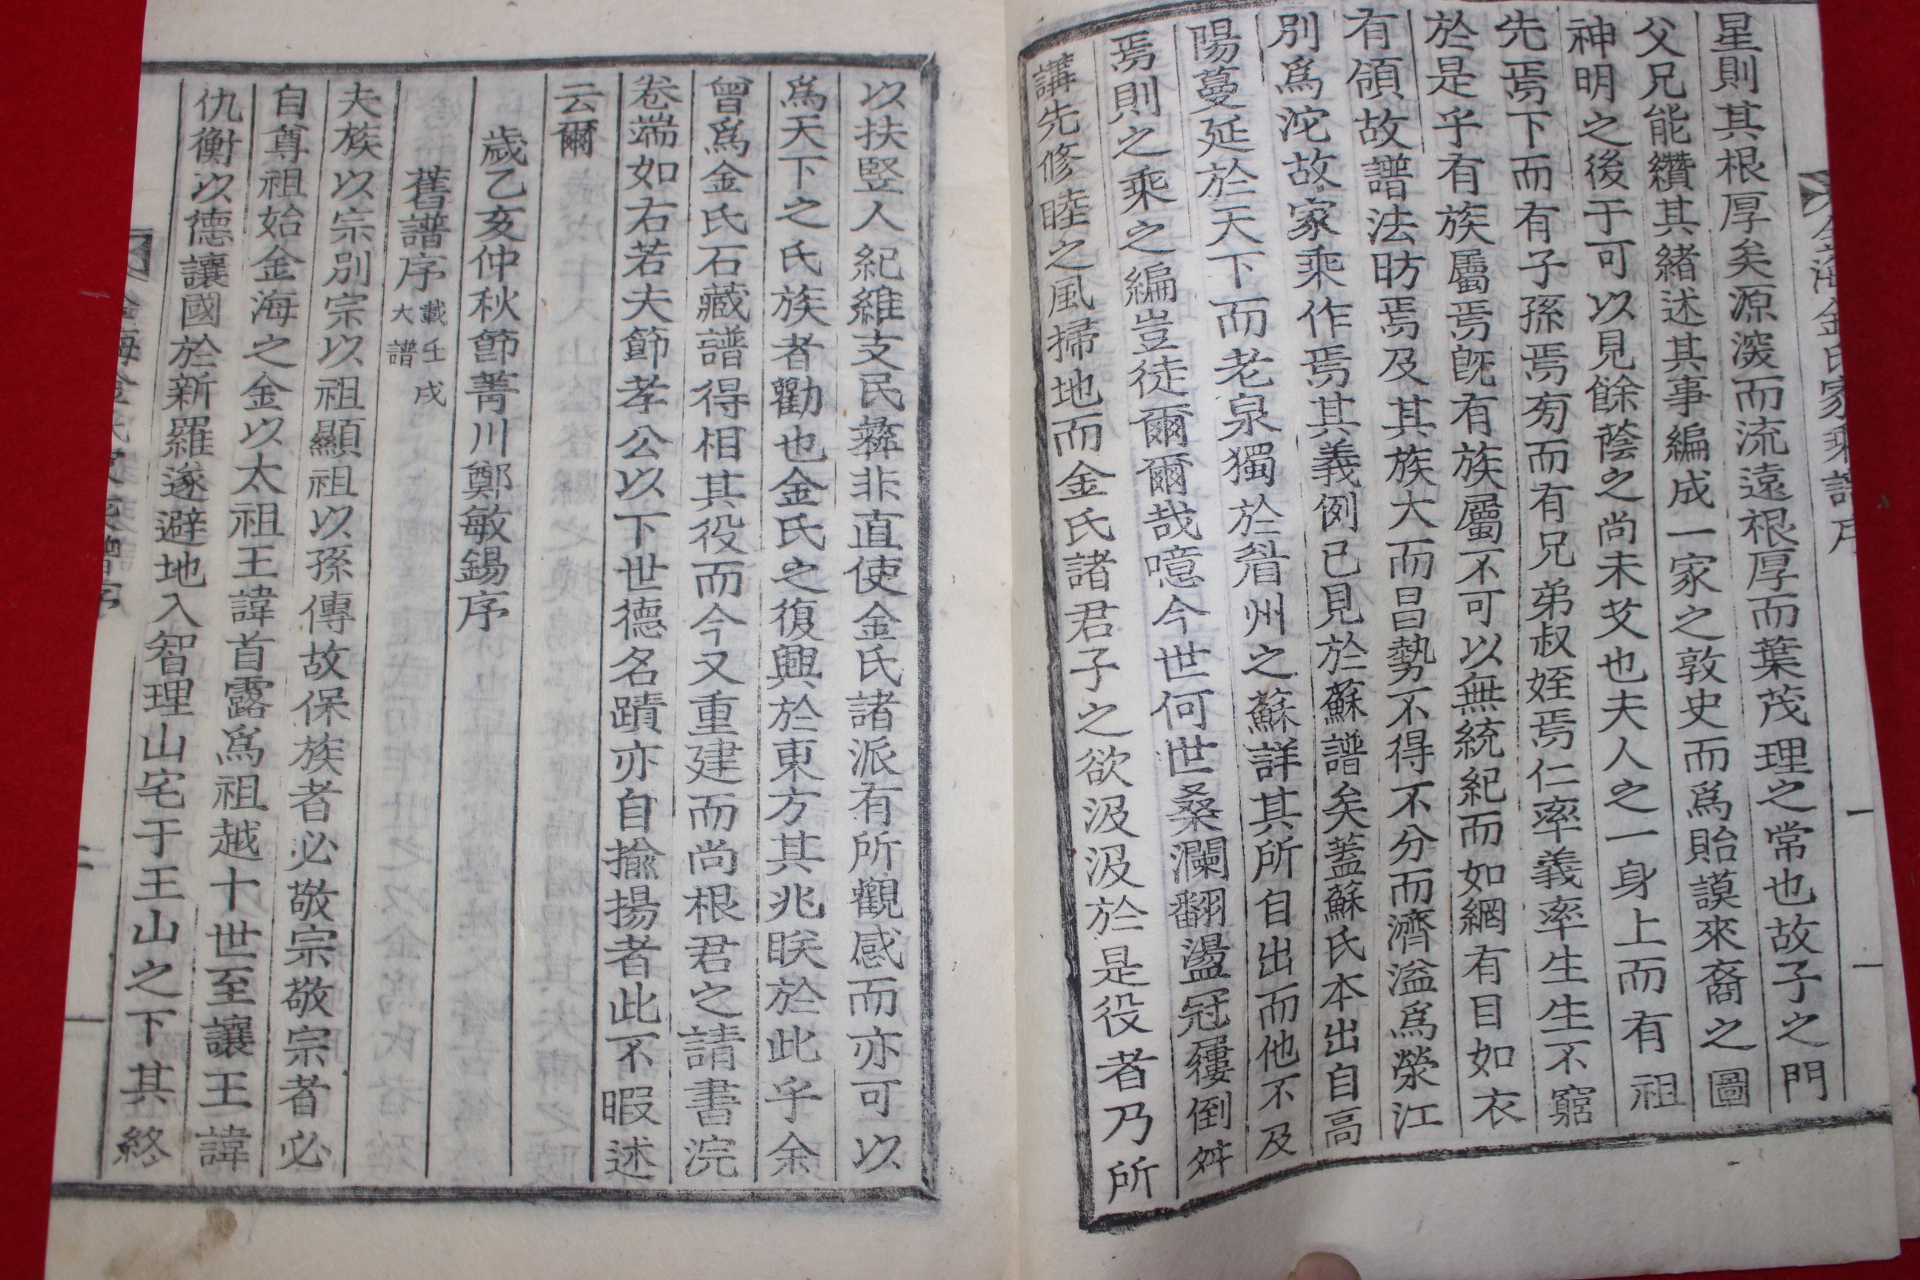 星則其根厚矣源深而流遠根厚而葉茂理之常也故子之門
父兄能纘其緒述其事編成一家之敦史而爲貽謨來裔之圖
神明之後于可以見餘蔭之尚未艾也夫人之一身上而有祖
先焉下而有子孫焉旁而有兄弟叔姪焉仁率義率生生不窮
於是乎有族屬焉旣有族屬不可以無統紀而如網有目如衣
有領故譜法昉焉及其族大而昌勢不得不分而濟溢爲滎江
別爲沱故家乘作焉其義例已見於蘇譜矣蓋蘇氏本出自高
陽蔓延於天下而老泉獨於眉州之蘇詳其所自出而他不及
焉則之乘之編豈徒爾爾哉噫今世何世桑瀾翻盪冠屨倒舛
講先修睦之風掃地而金氏諸君子之欲汲汲於是役者乃所
以扶竪人紀維支民彝非直使金氏諸派有所觀感而亦可以
爲天下之氏族者勸也金氏之復興於東方其兆眹於此乎余
曾爲金氏石藏譜得相其役而今又重建而尚根君之請書浣
卷端如右若夫節孝公以下世德名蹟亦自揄揚者此不暇述
云爾
歲乙亥仲秋節菁川鄭敏錫序
舊譜序 載壬戌大譜
夫族以宗別宗以祖顯祖以孫傳故保族者必敬宗敬宗者必
自尊祖始金海之金以太祖王諱首露爲祖越十世至讓王諱
仇衡以德讓國於新羅遂避地入智理山宅于王山之下其終
金海金氏家乘譜序